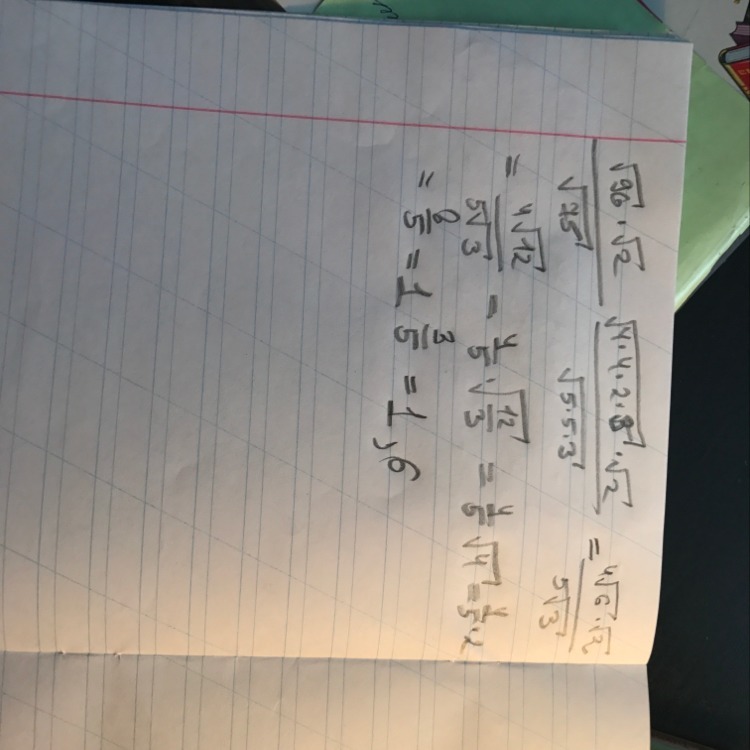 \frac{\sqrt{96} \cdot \sqrt{2}}{\sqrt{75}} \frac{\sqrt{4 \cdot 4 \cdot 2 \cdot 8} \cdot \sqrt{2}}{\sqrt{5 \cdot 5 \cdot 3}} = \frac{4\sqrt{6} \cdot \sqrt{2}}{5\sqrt{3}}
= \frac{4\sqrt{12}}{5\sqrt{3}} = \frac{4}{5} \cdot \sqrt{\frac{12}{3}} = \frac{4}{5} \sqrt{4} = \frac{4}{5} \cdot 2
= \frac{8}{5} = 1 \frac{3}{5} = 1,6